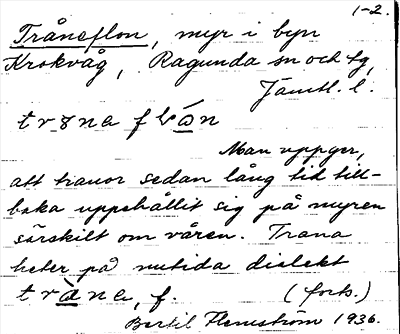 1-2.
Tråneflon, myr i byn
Krokvåg, Ragunda sn och tg,
Jämtl. l.
Man uppger,
att tranor sedan lång tid till-
baka uppehållit sig på myren
särskilt om våren. Trana
heter på nutida dialekt
tràne, f. (forts.)
Bertil Flemström 1936.